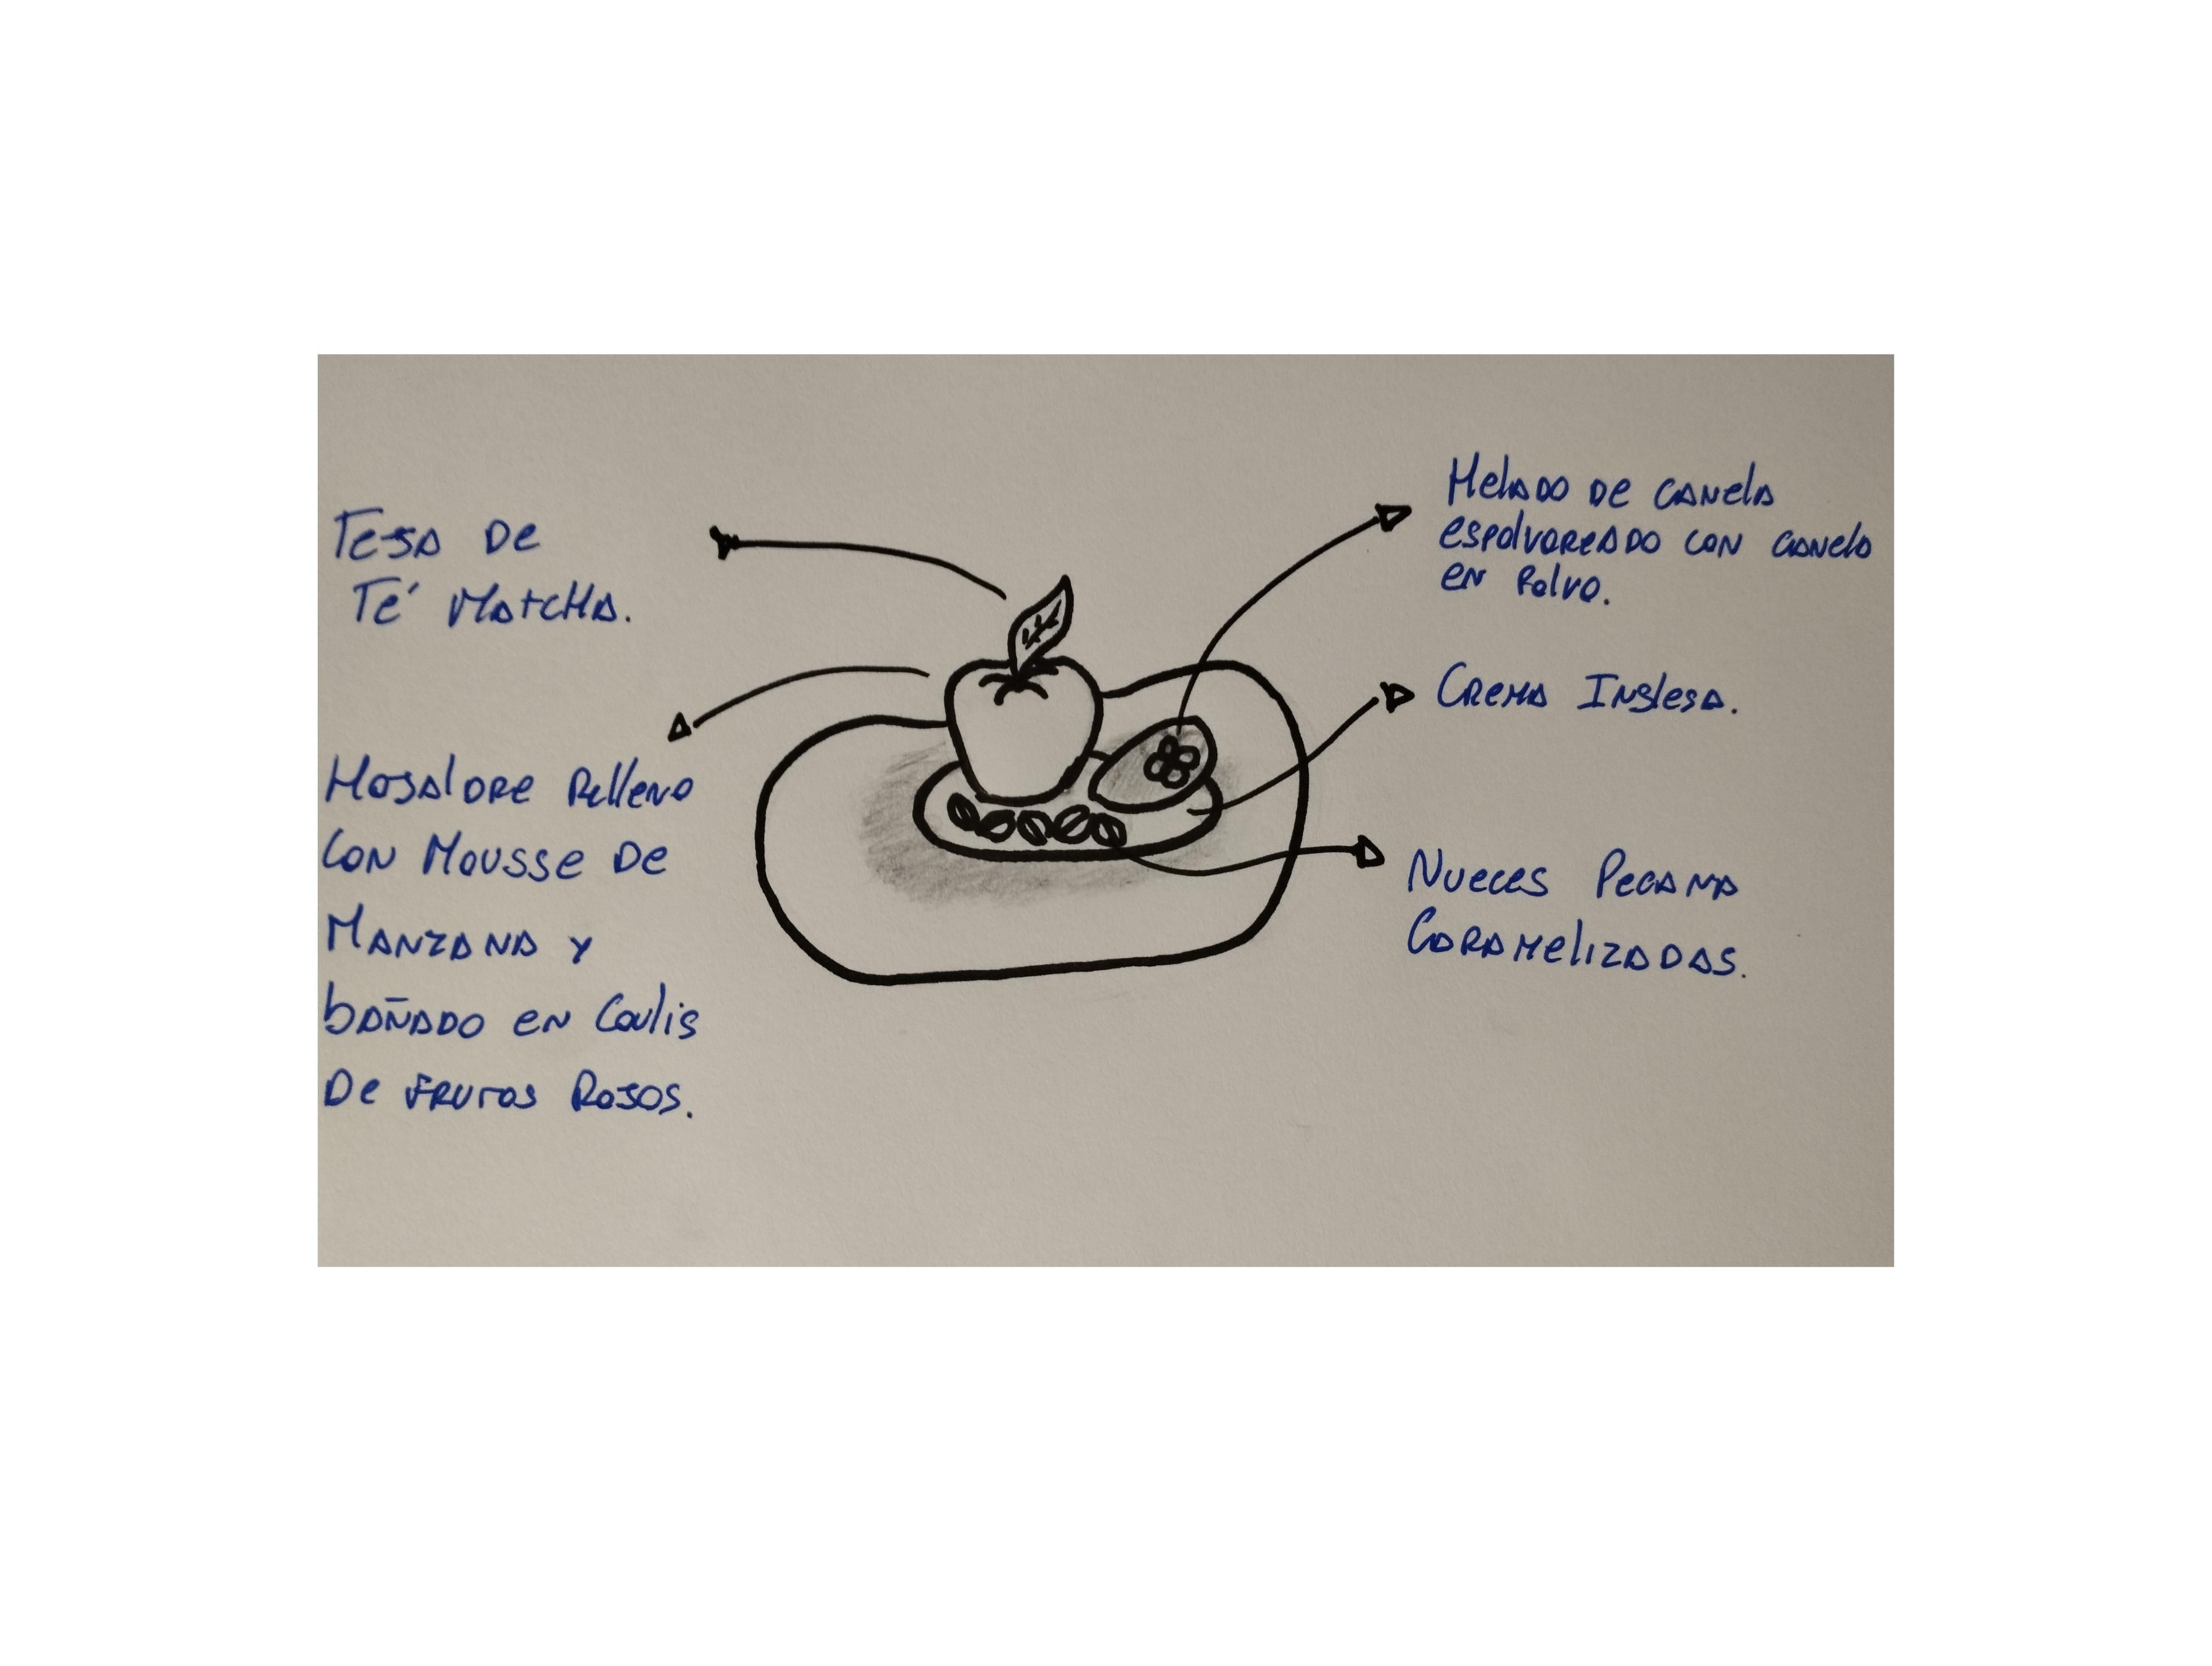 Teja de
Té Matcha.
Hojaldre Relleno
con Mousse de
Manzana y
bañado en Coulis
De frutos Rojos.
Helado de canela
espolvoreado con canela
en Polvo.
Crema Inglesa.
Nueces Pecana
Caramelizadas.